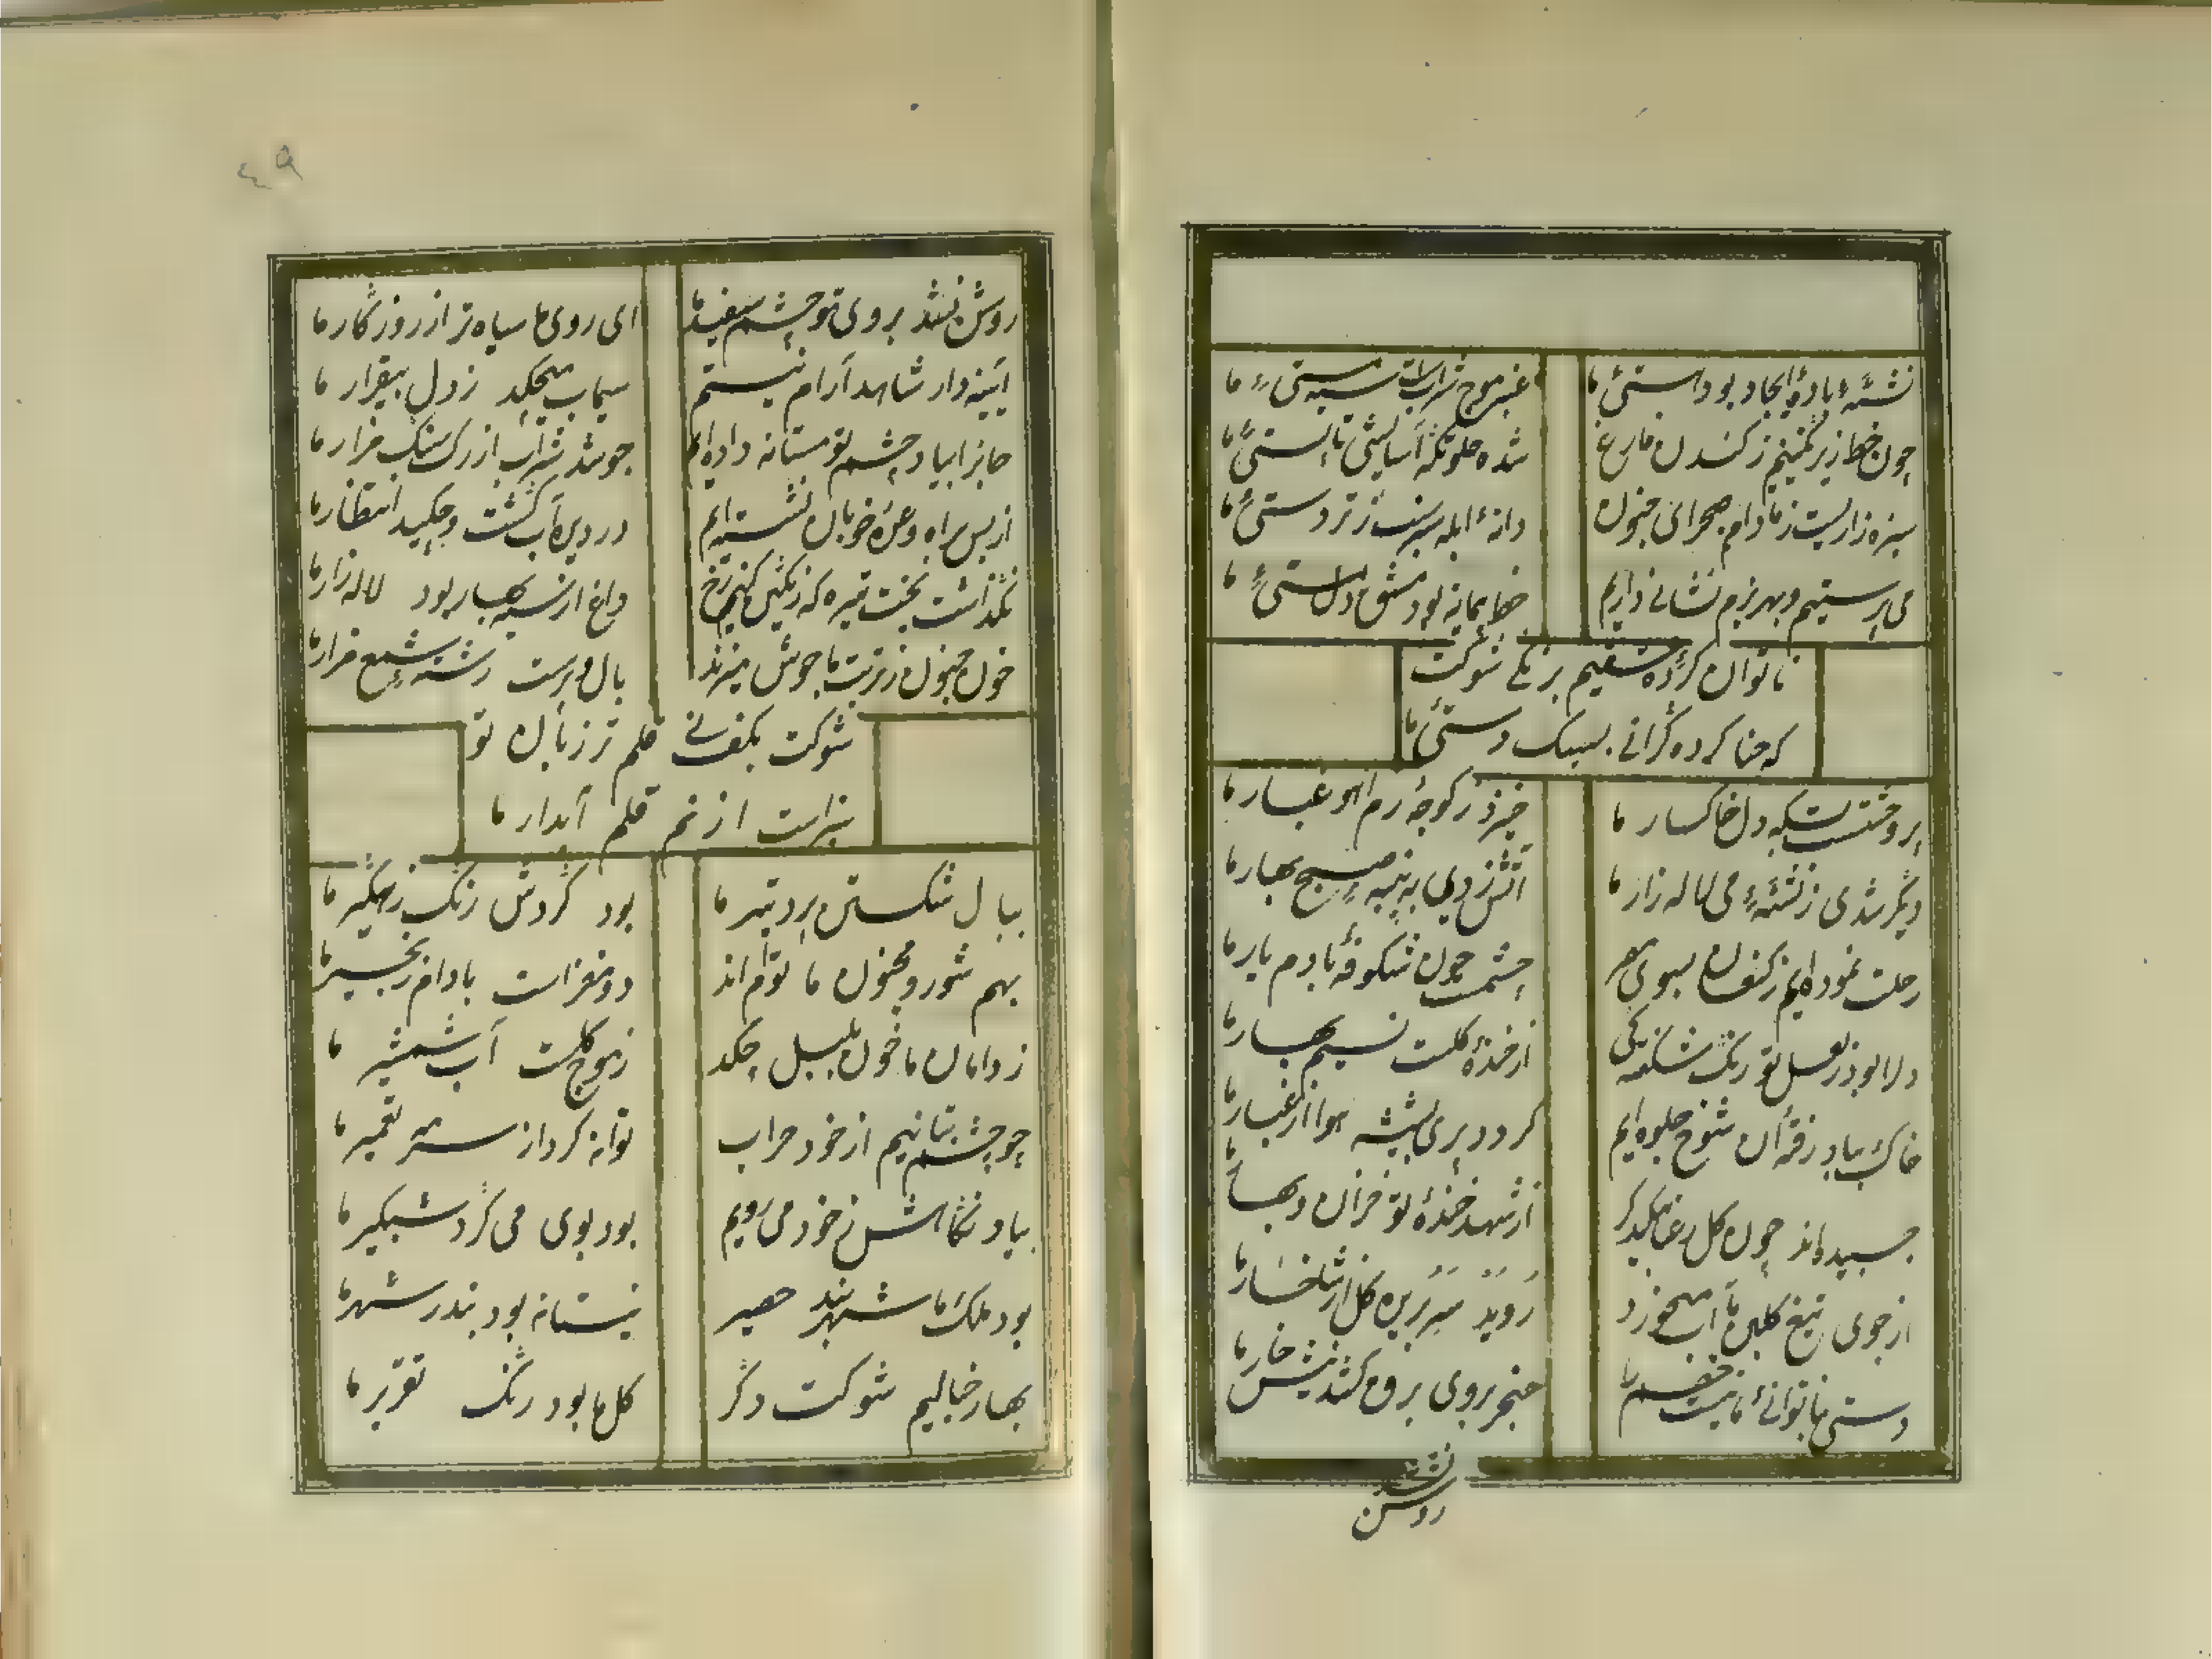 نشئهٔ بادهٔ ایجاد بود هستیٔ ما
غیر موج شراب سیه مستیٔ ما
چون خط از زیر نگینیم ز کندن فارغ
شده جلوتکه آسایش ما پستیٔ ما
سبزه زاریست زما دام صحرای جنون
دانهٔ ابله سبز شد ز تردستیٔ ما
می پرستیم و بهر بزم نشانی داریم
خط پیمانه بود مشق
ناتوان کرده ضعیفیم برنکی شوکت
که حنا کرده کرانی بسبک دستیٔ ما
پر وحشتست بسکه دل خاکسار ما
خیزد ز کوچهٔ رم آهو غبار ما
دیکر شدی ز نشئهٔ می لاله زار ما
آتش زدی به پنبهٔ صبح بهار ما
رحلت نموده ایم ز کنعان بسوی مصر
چشمت چون شکوفهٔ بادام یار ما
دلها بود ز لعل تو رنک شکفتکی
از خندهٔ کلت نسیم بهار ما
خاک بباد رفتهٔ آن شوخ جلوه ایم
کردد پری بشیشه هوا از غبار ما
چسپیده اند چون کل رعنا بیکدکر
از شهد خندهٔ تو خزان و بهار ما
از جوی تیغ کلبن ما آب میخورد
روید سر بریده کل از شاخسار ما
دستی بناتوانیٔ ما نیست خصم را
خنجر بروی برق کشد نیش خار ما
روشن نشد
٤٩
روشن نشد بروی تو چشم سفید ما
ای روی ما سیاه تر از روزکار ما
آیینه دار شاهد آرام نیستم
سیماب میچکد ز دل بیقرار ما
جانرا بیاد چشم تو مستانه داده ایم
جوشد شراب از رک سنک مزار ما
از بس براه وعدهٔ خوبان نشسته ایم
در دیده آب کشت و چکید انتظار ما
نکذاشت بخت تیره که رنکین کنیم رخ
داغ از نسیم بهار بود لاله زار ما
خون جنون ز تربت ما جوش میزند
بال و پرست رشتهٔ شمع مزار ما
شوکت بکف نی قلم تر زبان تو
سبزاست از نم قلم آبدار ما
ببال شکستن پرد تیر ما
بود کردش رنک زهکیر ما
بهم شور و مجنون ما توام اند
دو مغزاست بادام زنجیر ما
ز دامان ما خون بلبل چکد
ز موج کلست آب شمشیر ما
چو چشم بتانیم از خود خراب
توانه کرد از سرمه تعمیر ما
بیاد نکاهش ز خود می رویم
بود بوی می کرد شبکیر ما
بود ملک ما شهربند حصیر
نیستانه بود بندر شهر ما
بهار خیالیم شوکت دکر
کل ما بود رنک تقریر ما